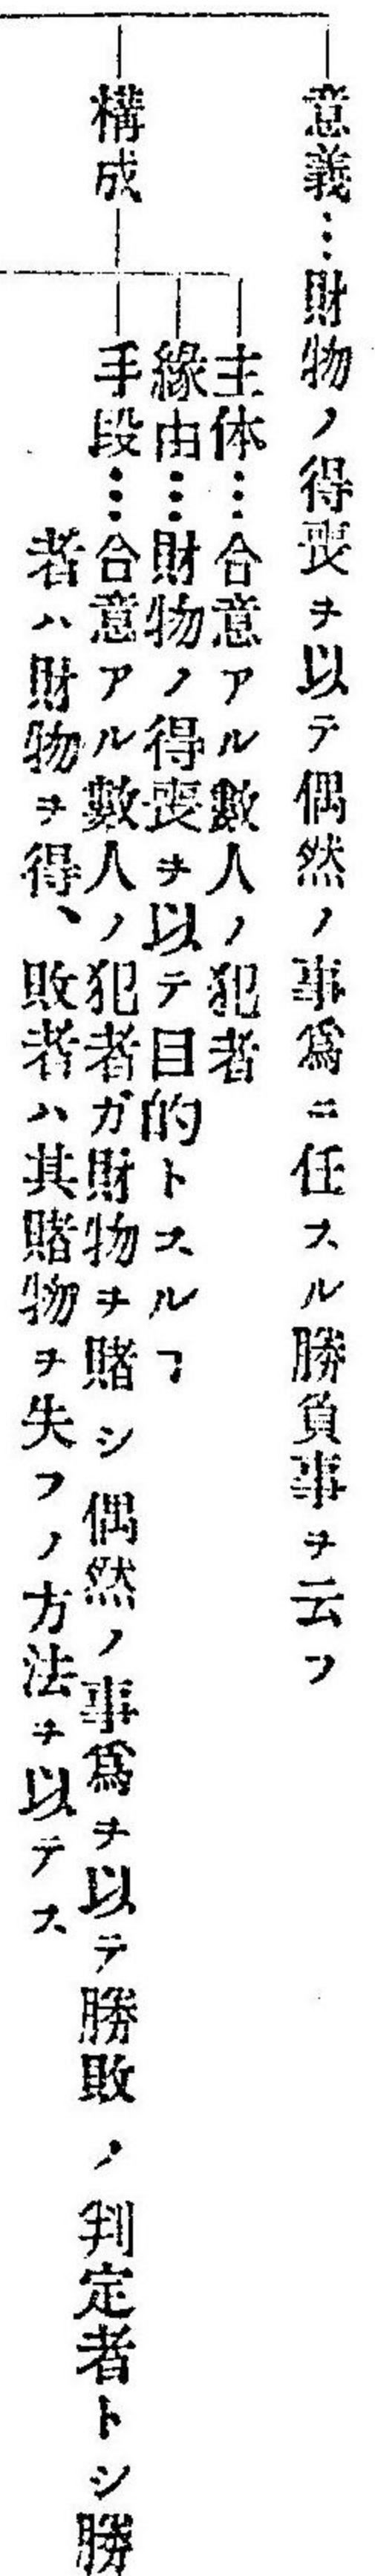 意義…財物ノ得喪ヲ以テ偶然ノ事爲ニ任スル勝負事ヲ云フ
構成
主体…合意アル數人ノ犯者
緣由…財物ノ得喪ヲ以テ目的トスルヿ
手段…合意アル數人ノ犯者ガ財物ヲ賭シ偶然ノ事爲ヲ以テ勝敗ノ判定者トシ勝
者ハ財物ヲ得、敗者ハ其賭物ヲ失フノ方法ヲ以テス